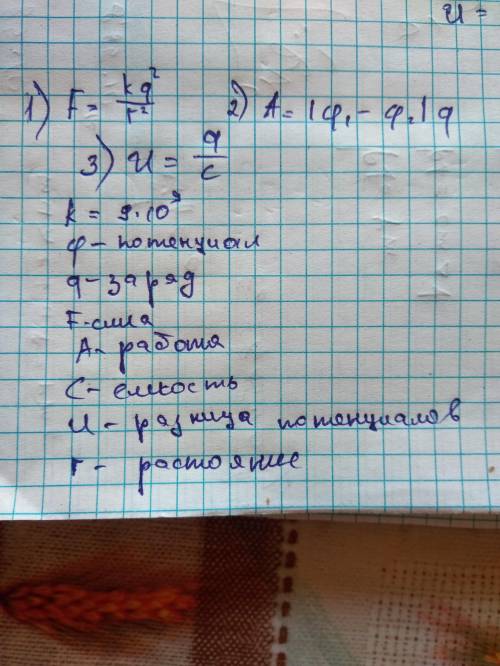 U =
1) F = kq²/r² 2) A = |φ₁ - φ₂| q
3) U = q/c
k = 9·10⁹
φ - потенциал
q - заряд
F - сила
A - работа
C - емкость
U - разница потенциалов
r - растояние